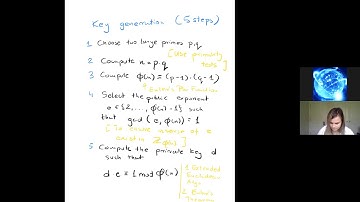 Key generation (5 steps)
1 Choose two large primes p,q
[Use primality tests]
2 Compute n = p·q
3 Compute Φ(n) = (p-1)·(q-1)
* Euler's Phi Function
4 Select the public exponent
e ∈ {2, ..., Φ(n)-1} such
that gcd(e, Φ(n)) = 1
[To ensure inverse of e
exists in ZΦ(n)]
5 Compute the private key d
such that
d e ≡ 1 mod Φ(n)
1 Extended
Euclidean
Algo
2 Euler's
Theorem